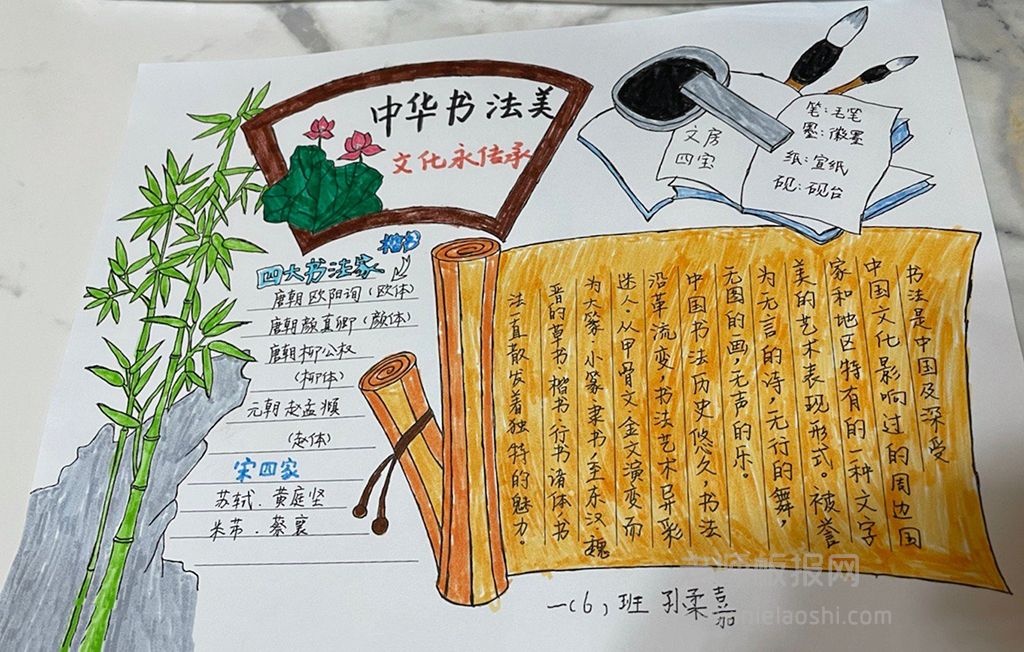 中华书法美
文化永传承
文房
四宝
笔:毛笔
墨:徽墨
纸:宣纸
砚:砚台
楷书
四大书法家
唐朝欧阳询(欧体)
唐朝颜真卿(颜体)
唐朝柳公权
(柳体)
元朝赵孟頫
(赵体)
宋四家
苏轼.黄庭坚
米芾.蔡襄
书法是中国及深受
中国文化影响过的周边国
家和地区特有的一种文字
美的艺术表现形式。被誉
为无言的诗,无行的舞,
无图的画,无声的乐。
中国书法历史悠久,书法
沿革流变,书法艺术异彩
迷人.从甲骨文金文演变而
为大篆、小篆隶书,至东汉、魏
晋的草书.楷书.行书诸体书
法一直散发着独特的魅力。
一(6)班 孙柔嘉
板报网
nielaoshi.com